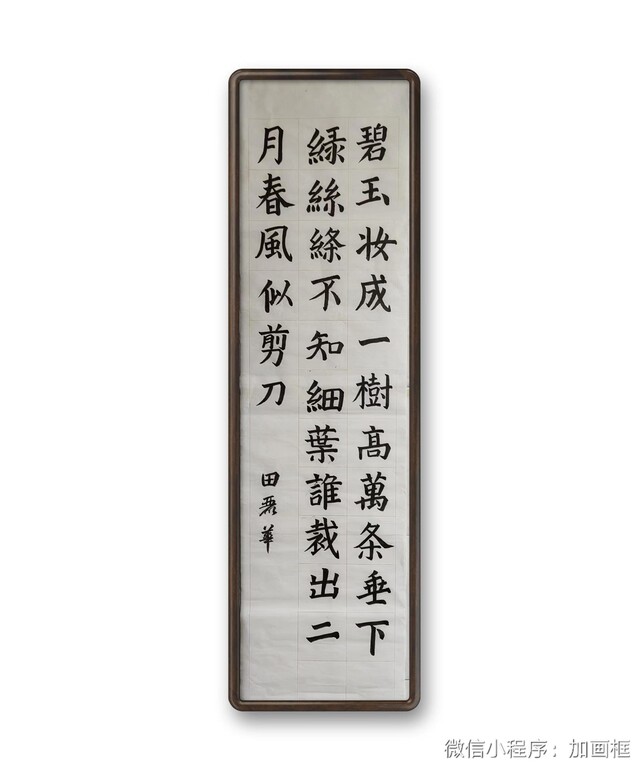 碧玉妆成一樹高萬条垂下
緑絲絛不知細葉誰裁出二
月春風似剪刀
田麗華
微信小程序：加画框